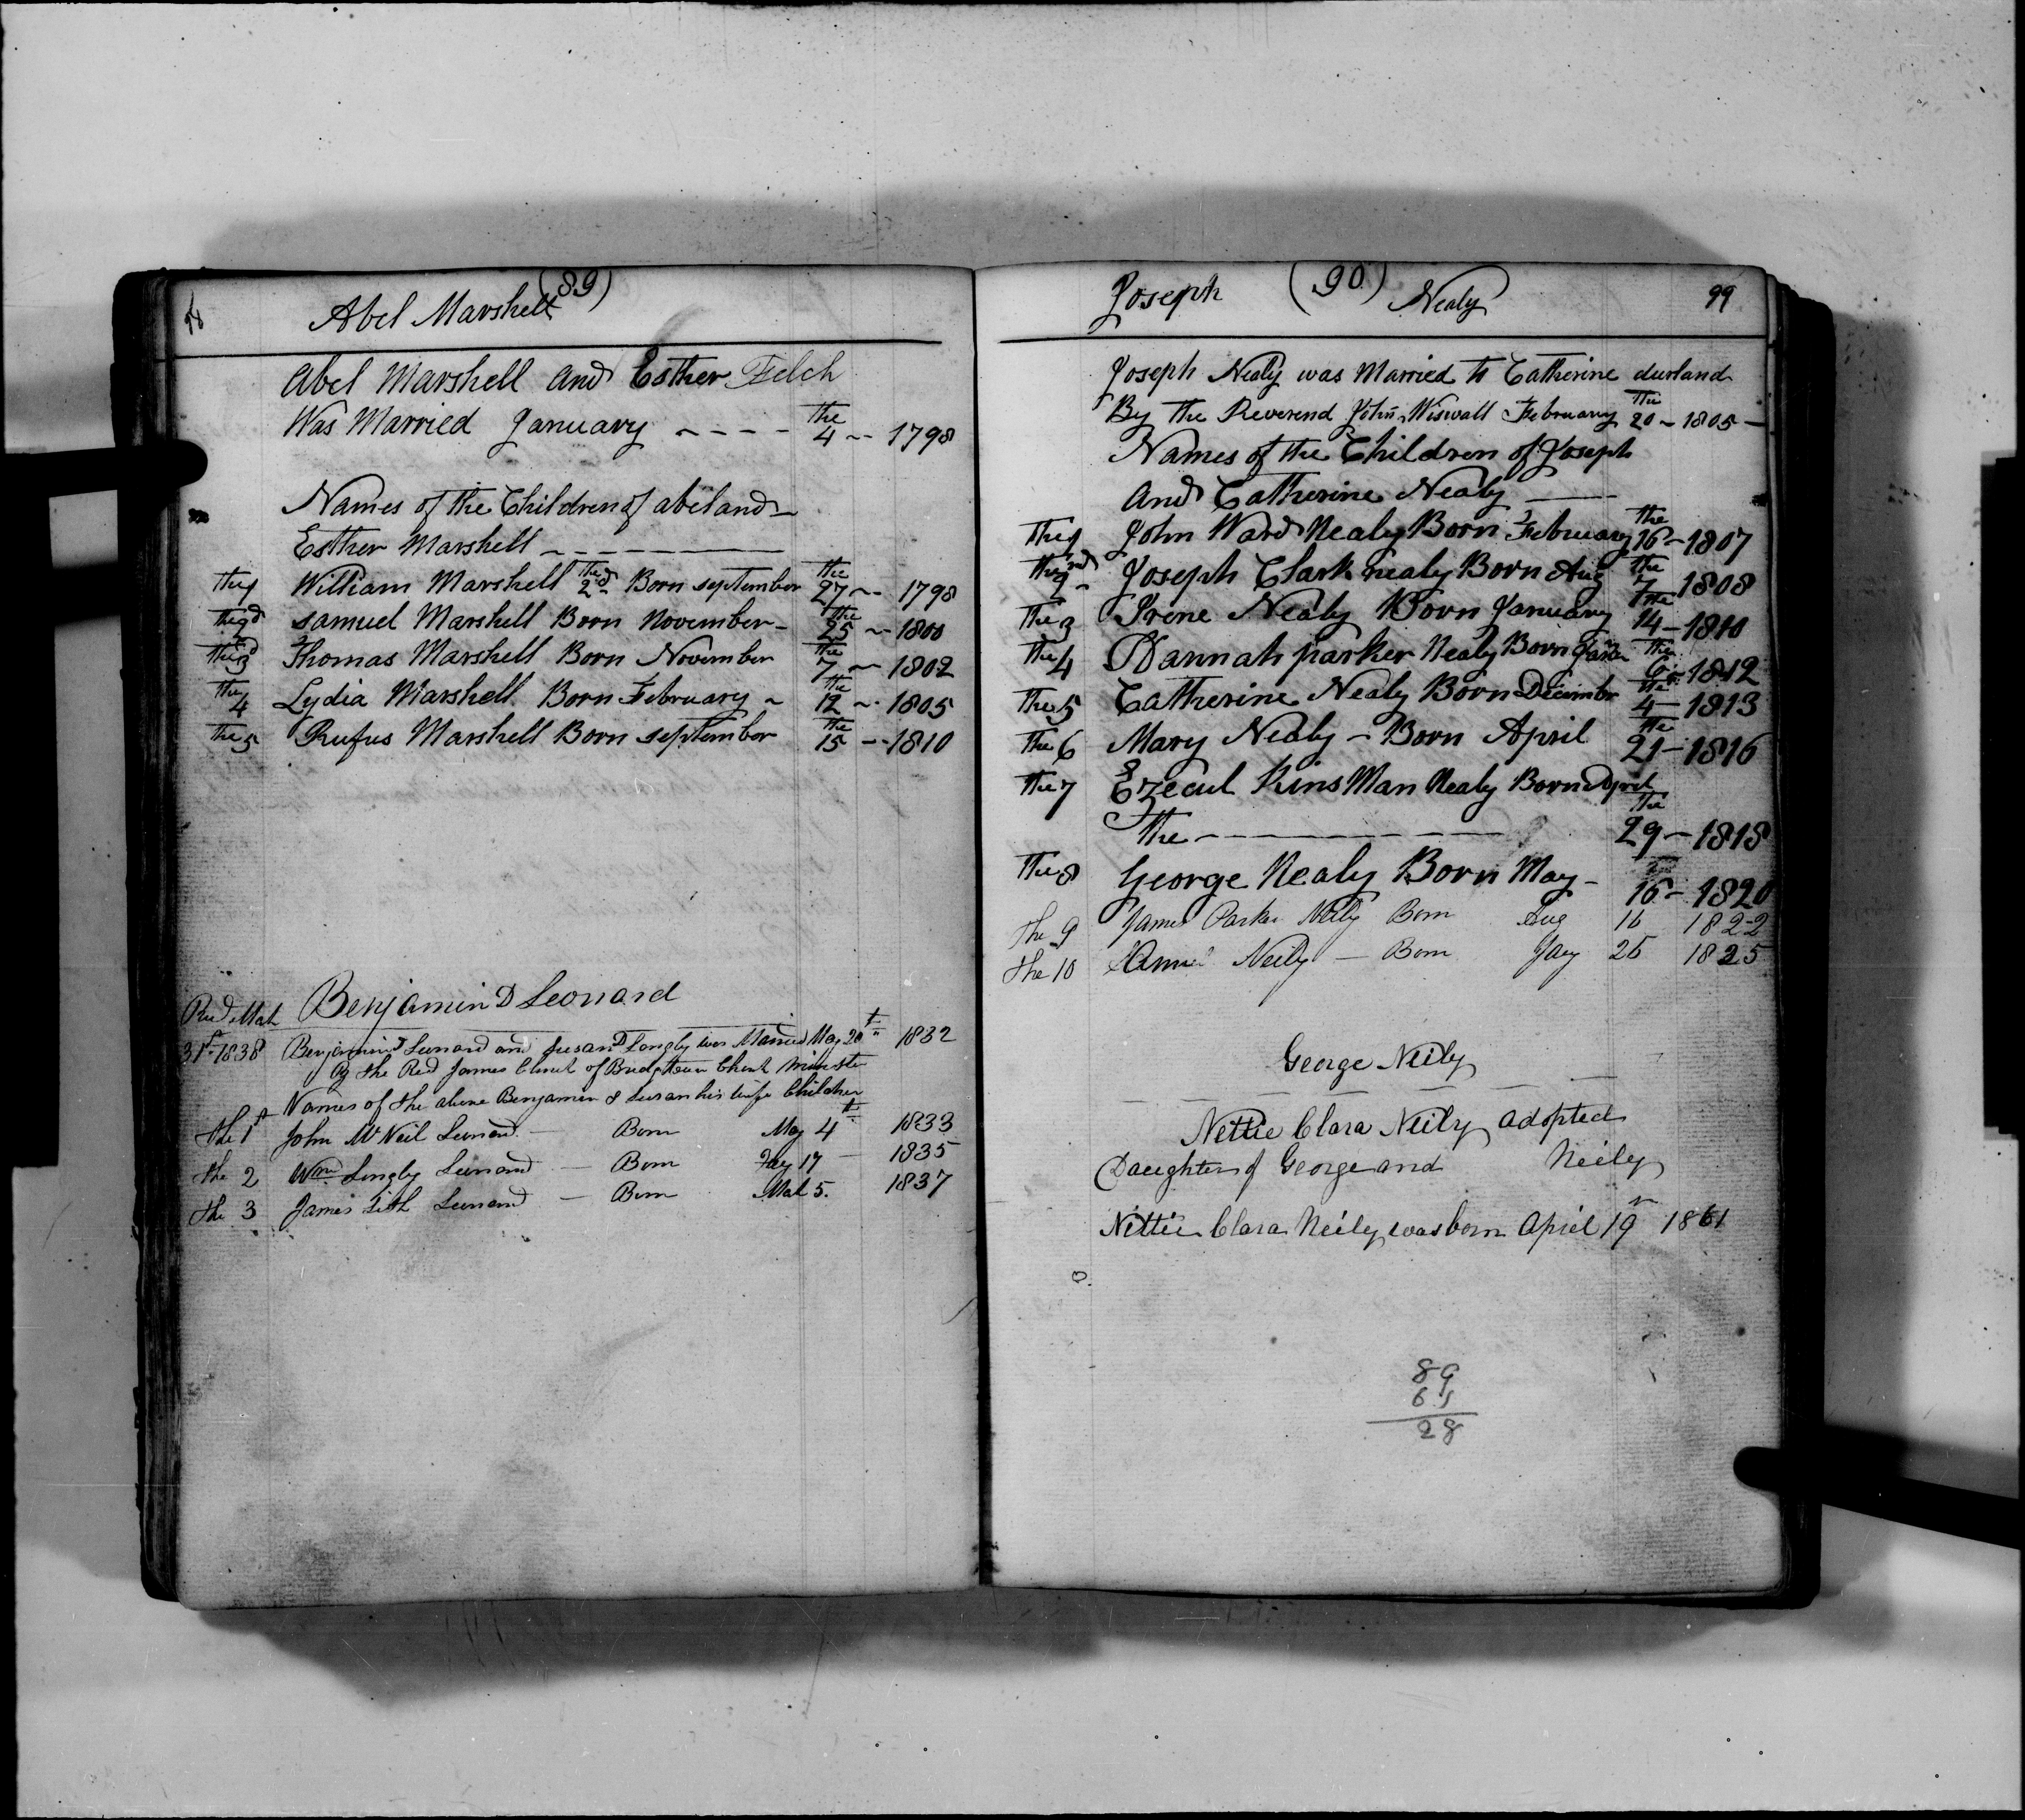 98
(89)
Abel Marshell
Abel Marshell and Esther Felch
Was Married January - - - - the 4 -- 1798
Names of the Children of abel and
Esther Marshell
the 1 William Marshell the 2d Born september the 27 -- 1798
the 2d samuel Marshell Born November - the 25 -- 1800
the 3d Thomas Marshell Born November the 7 -- 1802
the 4 Lydia Marshell Born February - the 12 -- 1805
the 5 Rufus Marshell Born september the 15 -- 1810
Benjamin D Leonard
31st 1838 Benjamin D Leonard and Susan D Longly was Married May 20th 1832
By the Rev'd James of Bridgetown
Names of the above Benjamin & Susan his wife Children
the 1st John Mc Neil Leonard - Born May 4th 1833
the 2 Wm Longly Leonard - Born 17 - 1835
the 3 James Leonard - Born 5. 1837
Joseph (90) Nealy 99
Joseph Nealy was Married to Catherine durland
By the Reverend John Wiswall February the 20 - 1805 -
Names of the Children of Joseph
and Catherine Nealy
the 1 John Ward Nealy Born February the 16 - 1807
the 2nd Joseph Clark nealy Born Aug the 7 1808
the 3 Irene Nealy Born January the 14 - 1810
the 4 Hannah parker Nealy Born the 6 - 1812
the 5 Catherine Nealy Born December the 4 - 1813
the 6 Mary Nealy - Born April the 21 - 1816
the 7 Ezecul Kins Man Nealy Born April
the - the 29 - 1818
the 8 George Nealy Born May - 16 - 1820
the 9 James Parker Neily Born Aug 16 1822
the 10 Neily - Born Jany 26 1825
George Neily
Nettie Clara Neily adopted
Daughter of George and Neily
Nettie Clara Neily was born April 19 1861
89
61
28